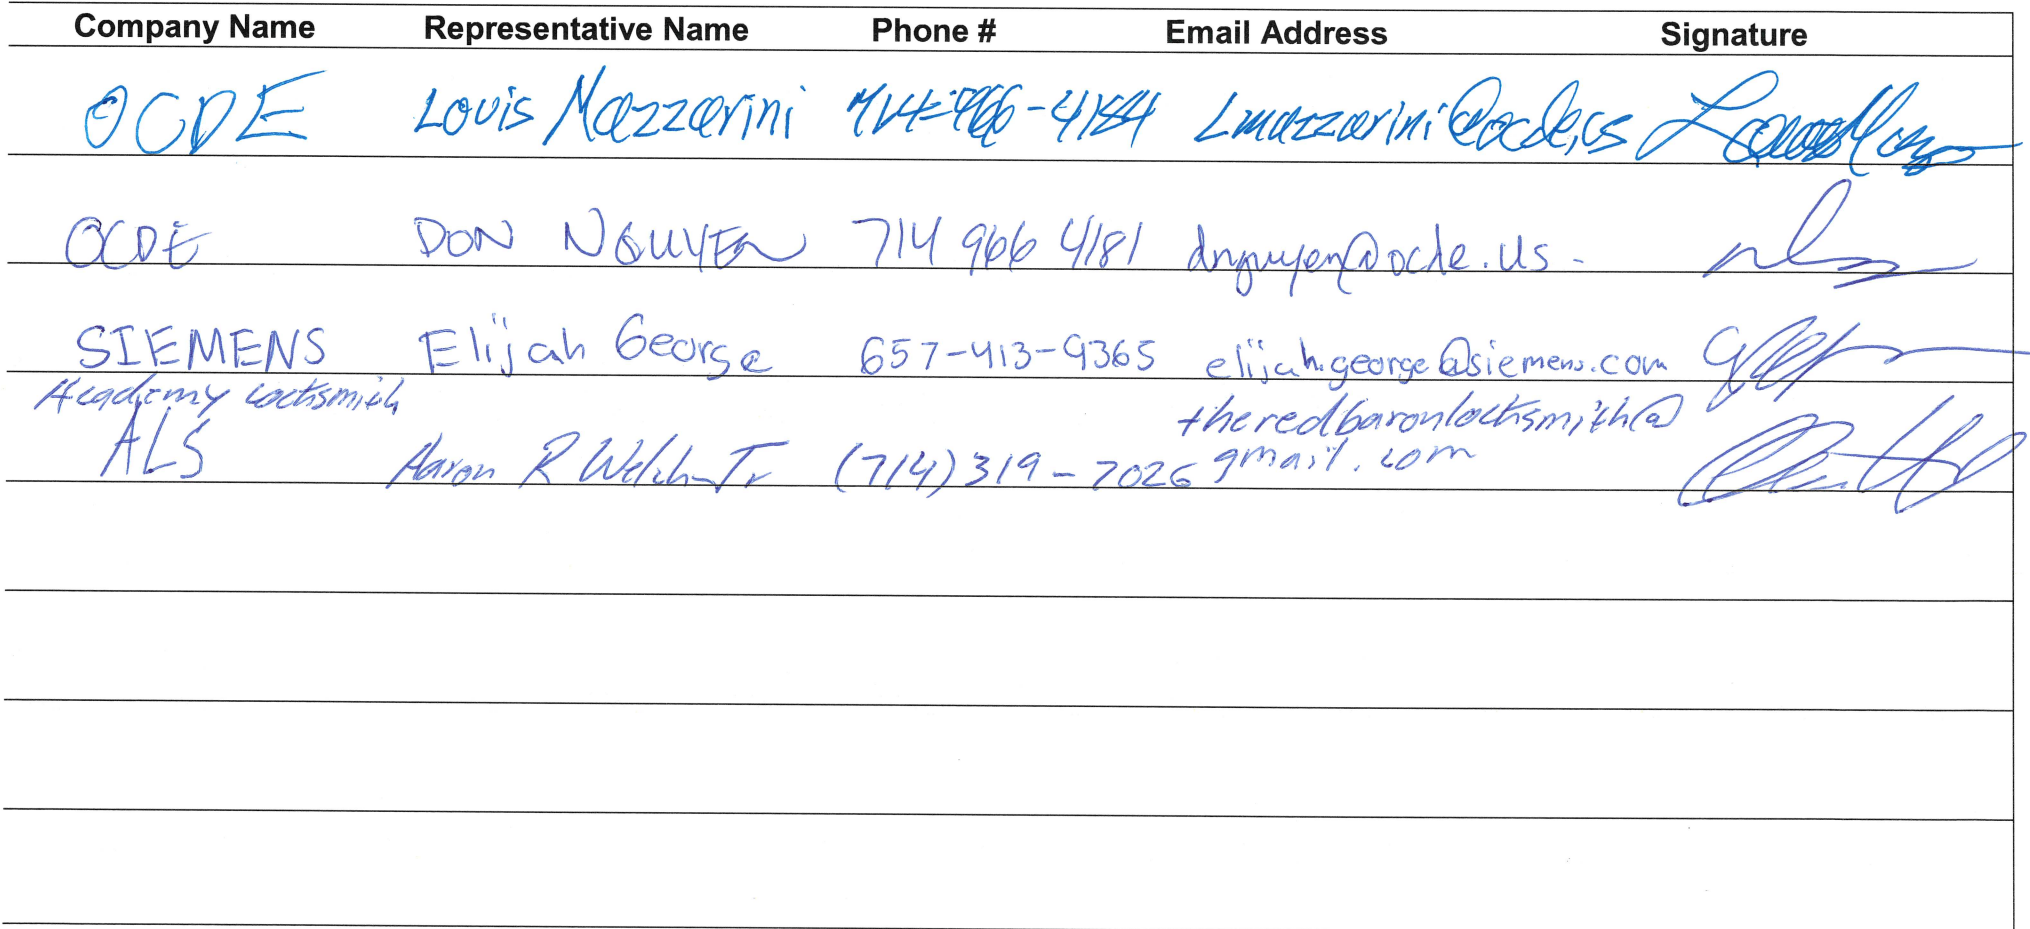 Company Name Representative Name Phone # Email Address Signature
OCDE Louis Mazzarini 714-966-4184 Lmazzarini@ocde.us
OCDE DON NGUYEN 714 966 4181 dnguyen@ocde.us
SIEMENS Elijah George 657-413-9365 elijah.george@siemens.com
Academy Locksmith theredbaronlocksmith@
ALS Aaron R Welch Jr (714)319-7026 gmail.com